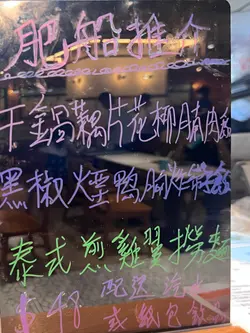 肥船推介
干鍋藕片花柳腩肉
黑椒煙鴨胸炒
泰式煎雞翼撈麵
$48 配送
或紙包飲